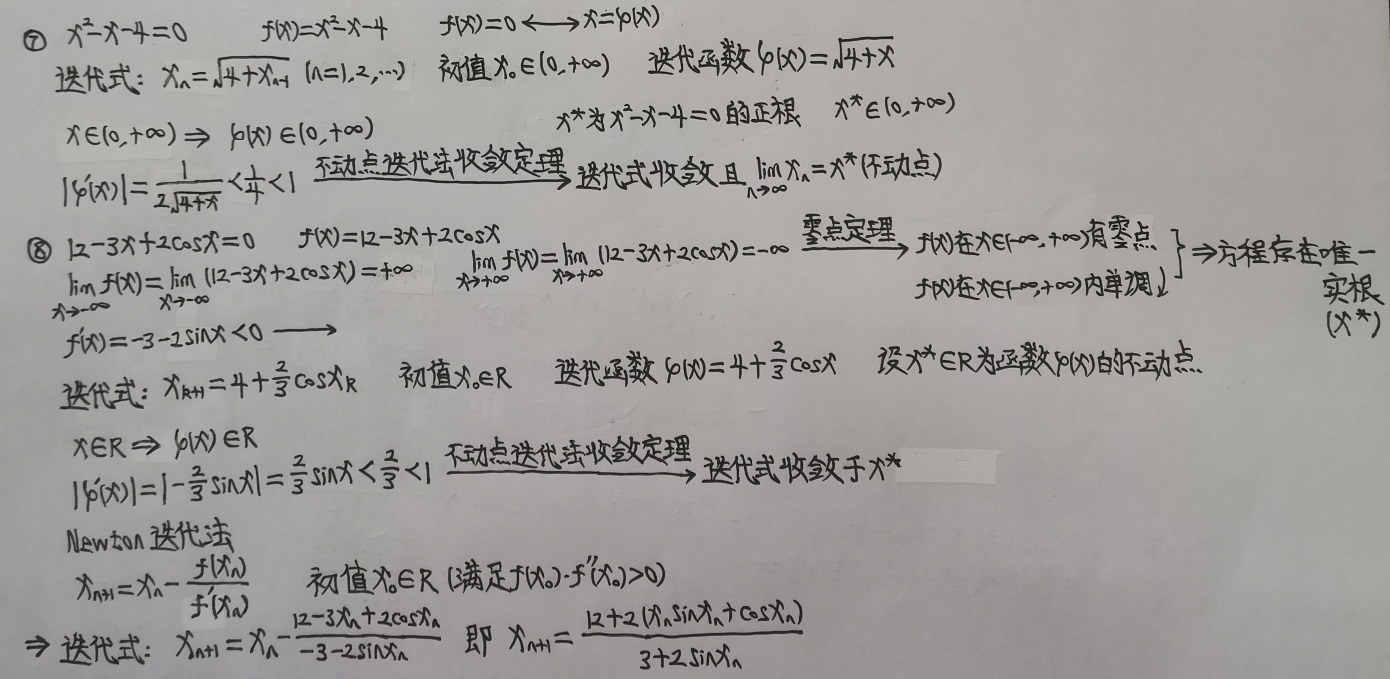 ⑦ x²-x-4=0 f(x)=x²-x-4 f(x)=0 ⟷ x=φ(x)
迭代式: xₙ=√(4+xₙ₋₁) (n=1,2,…) 初值x₀∈(0,+∞) 迭代函数φ(x)=√(4+x)
x∈(0,+∞) ⇒ φ(x)∈(0,+∞) x*为x²-x-4=0的正根 x*∈(0,+∞)
|φ'(x)|=1/(2√(4+x))<1/4<1 不动点迭代法收敛定理→ 迭代式收敛且 lim(n→∞) xₙ=x*(不动点)
⑧ 12-3x+2cosx=0 f(x)=12-3x+2cosx
lim(x→-∞) f(x)=lim(x→-∞) (12-3x+2cosx)=+∞ lim(x→+∞) f(x)=lim(x→+∞) (12-3x+2cosx)=-∞ 零点定理→ f(x)在x∈(-∞,+∞)有零点
f(x)在x∈(-∞,+∞)内单调↓ } ⇒方程存在唯一
实根
(x*)
f'(x)=-3-2sinx<0 ⟶
迭代式: xₖ₊₁=4+2/3cosxₖ 初值x₀∈R 迭代函数φ(x)=4+2/3cosx 设x*∈R为函数φ(x)的不动点
x∈R ⇒ φ(x)∈R
|φ'(x)|=|-2/3sinx|=2/3sinx<2/3<1 不动点迭代法收敛定理→ 迭代式收敛于x*
Newton迭代法
xₙ₊₁=xₙ-f(xₙ)/f'(xₙ) 初值x₀∈R (满足f(x₀)·f''(x₀)>0)
⇒ 迭代式: xₙ₊₁=xₙ-(12-3xₙ+2cosxₙ)/(-3-2sinxₙ) 即 xₙ₊₁=(12+2(xₙsinxₙ+cosxₙ))/(3+2sinxₙ)